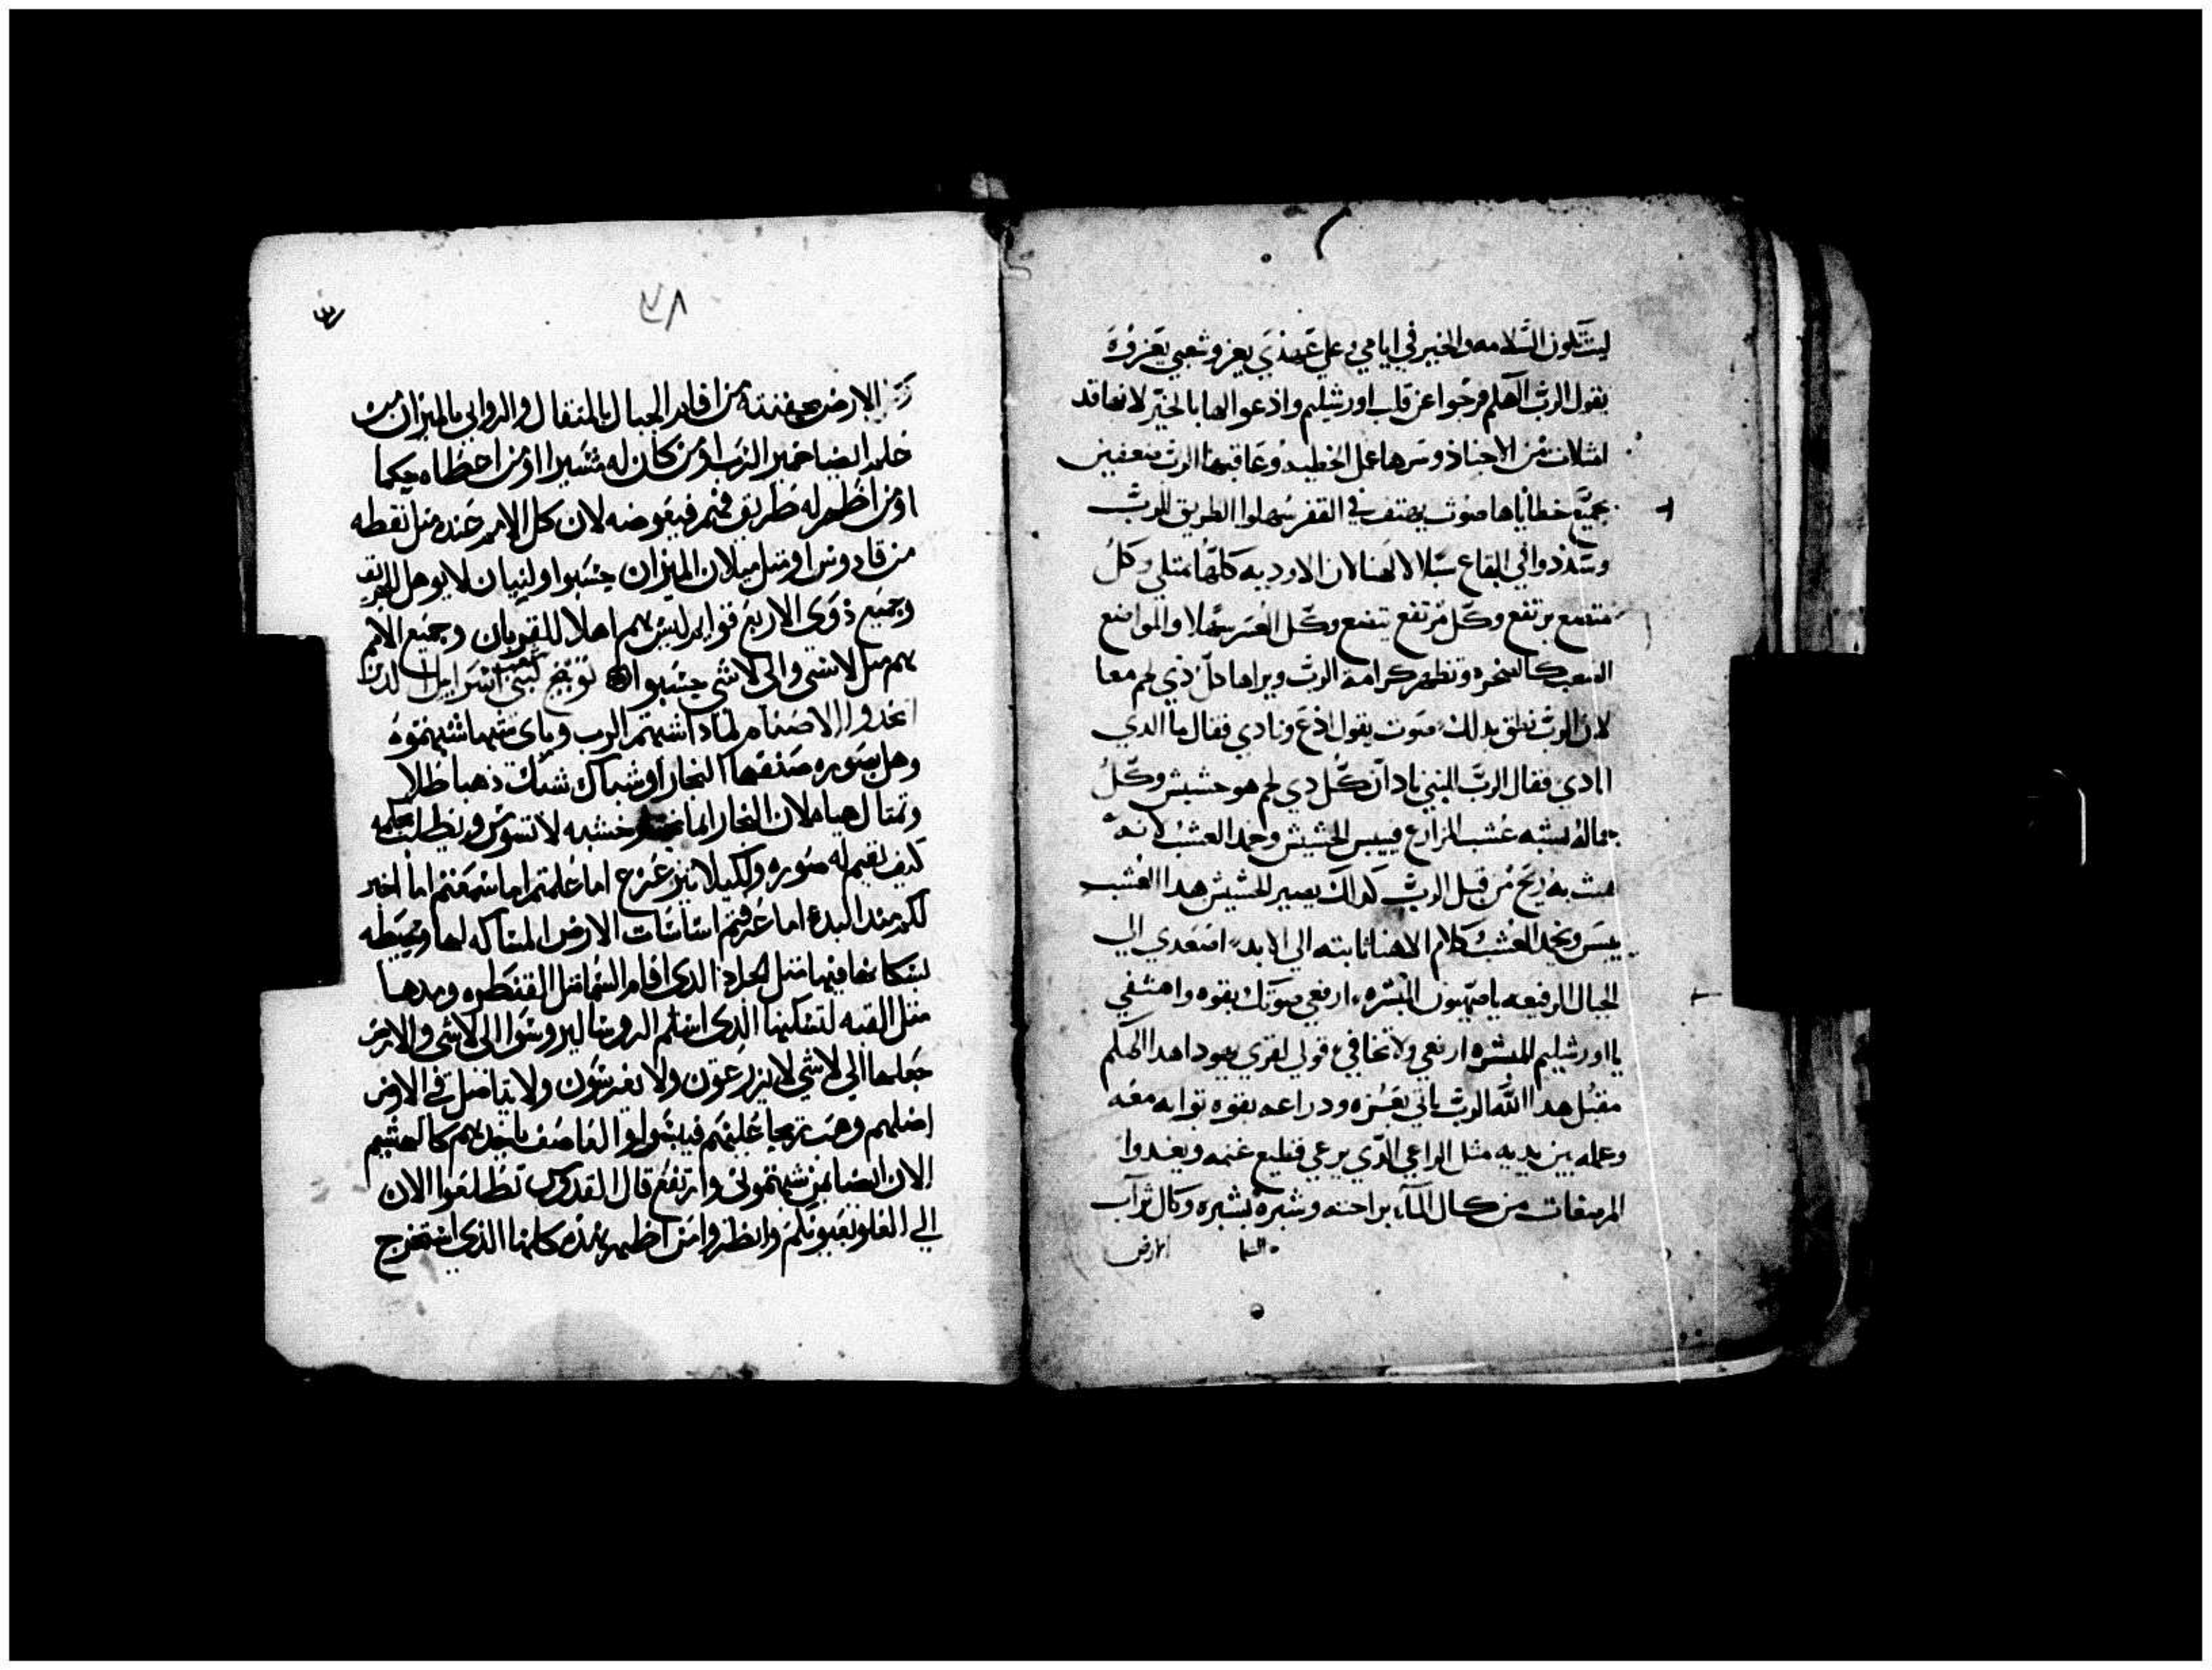 ليتلون السلامه والخير في ايامي وعلي عهدي يعز وشعبي يعزوه
يقول الرب الاهكم فرحوا عن قلب اورشليم وادعوا لها بالخير لانها قد
امتلات من الاجناد وسرها عمل الخطيه وعاقبها الرب ضعفين
بجميع خطاياها صوت يهتف في القفر سهلوا الطريق للرب
وسددوا في البقاع سبلا لالهنا لان الاوديه كلها تمتلي وكل
متضع يرتفع وكل مرتفع يتضع وكل العسر سهلا والمواضع
الصعبه كالصخره وتظهر كرامة الرب ويراها كل ذي لحم معا
لان الرب نطق بدلك صوت يقول ادع ونادي فقال ما الدي
انادي فقال الرب للنبي ناد ان كل دي لحم هو حشيش وكل
جماله يشبه عشب المزارع فييبس الحشيش وخمد العشب لانه
هبت به ريح من قبل الرب كدلك يصير الحشيش هدا العشب
يبس ويخمد العشب وكلام الاهنا ثابته الي الابد اصعدي الي
الجبال الرفيعه يا صهيون المبشره ارفعي صوتك بقوه واهتفي
يا اورشليم المبشره ارفعي ولا تخافي قولي لقري يهودا هدا الهكم
مقبل هدا الله الرب ياتي بعزه ودراعه بقوه ثوابه معه
وعمله بين يديه مثل الراعي الذي يرعي قطيع غنمه ويغدوا
المرضعات من كال الماء براحته وشبره بشبره وكال تراب
السما الارض
٣
٧٨
الارض بحفنته من اقام الجبال بالمثقال والروابي بالميزان من
خلد ايضا ضمير الرب او من كان له مشيرا او من اعطاه حكما
او من اظهر له طريق فهم فيعوضه لان كل الامم عنده مثل نقطه
من قادوس او مثل ميلان الميزان حسبوا ولبنان لا يوهل للحريق
وجميع ذوي الاربع قوايم ليس هم اهلا للقربان وجميع الامم
هم مثل لا شي والي لا شي حسبوا توبيخ لبني اسرايل الدين
اتخدوا الاصنام لمادا اشبهتم الرب وباي شبها شبهتموه
وهل بصوره صنعها النجار او شباك شبك ذهبا طلا
وتمثال هياه لان النجار انما خشبه لا تسوس ويطلب بحكمه
كيف يقيم له صوره ولكيلا يتزعزع اما علمتم اما سمعتم اما اخبر
لكم مند البدء اما عرفتم اساسات الارض الماسكه لها ومحيطه
بسكانها فيها مثل الجراد الدي اقام السما مثل القنطره ومدها
مثل القبه لتسكنها الذي اسلم الروسا ليروسوا الي لا شي والارض
جعلها الي لا شي لا يزرعون ولا يغرسون ولا يتاصل في الارض
اصلهم وهبت ريحا عليهم فيبسوا والعاصف ياخدهم كالهشيم
الان ايضا لمن شبهتموني وارتفع قال القدوس تطلعوا الان
الي العلو بعيونكم وانظروا من اظهر هذه كلها الذي استخرج